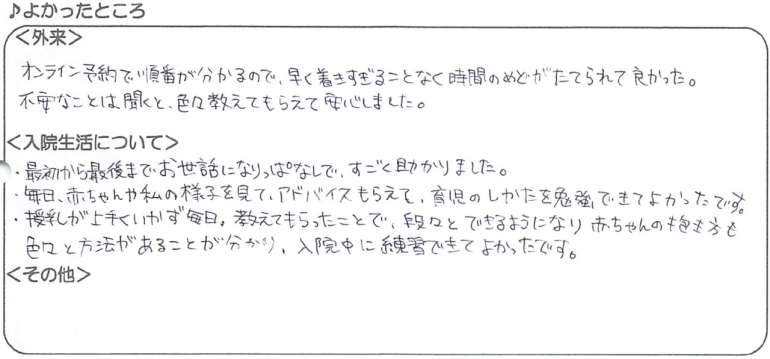 ♪よかったところ
<外来>
オンライン予約で順番が分かるので、早く着きすぎることなく時間のめどがたてられて良かった。
不安なことは聞くと、色々教えてもらえて安心しました。
<入院生活について>
・最初から最後までお世話になりっぱなしで、すごく助かりました。
・毎日、赤ちゃんや私の様子を見て、アドバイスもらえて、育児のしかたを勉強できてよかったです。
・授乳が上手くいかず毎日、教えてもらったことで、段々とできるようになり赤ちゃんの抱き方も
色々と方法があることが分かり、入院中に練習できてよかったです。
<その他>